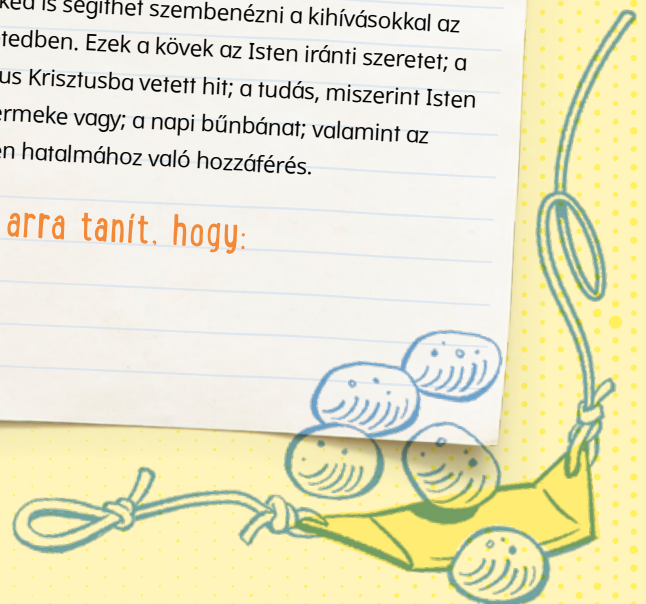 ked is segíthet szembenézni a kihívásokkal az
tedben. Ezek a kövek az Isten iránti szeretet; a
us Krisztusba vetett hit; a tudás, miszerint Isten
ermeke vagy; a napi bűnbánat; valamint az
en hatalmához való hozzáférés.
arra tanít, hogy: